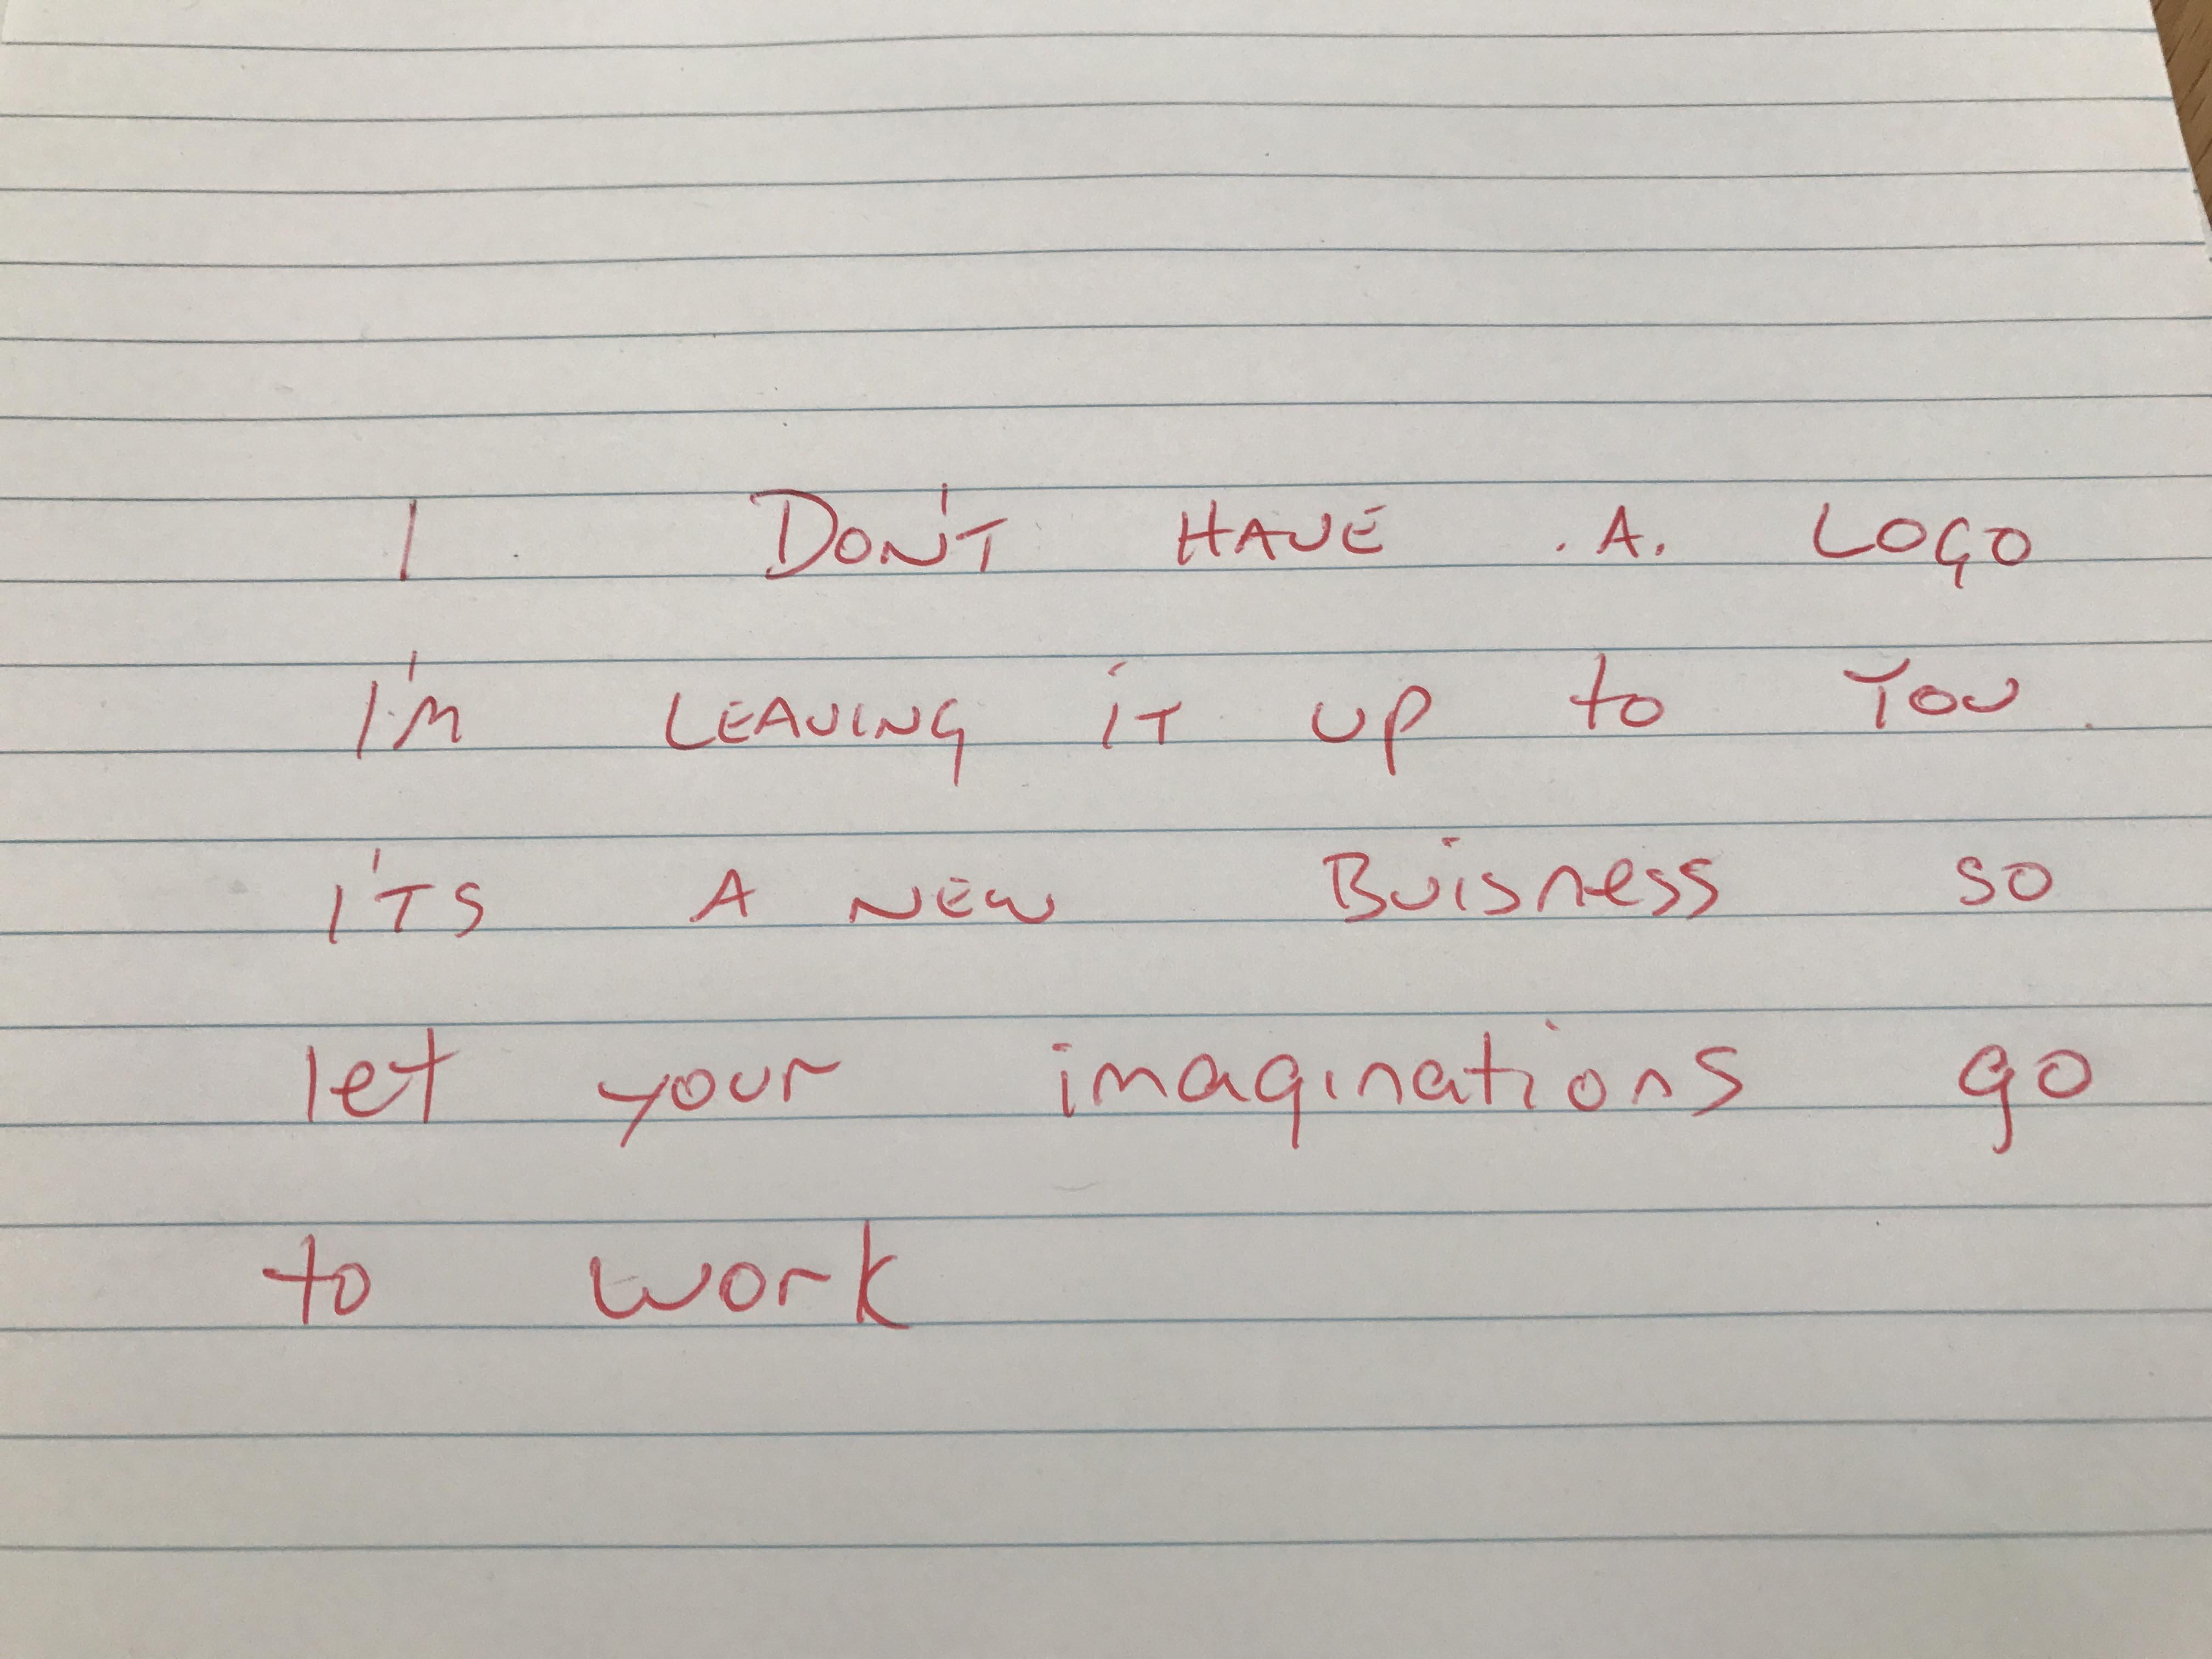 I DON'T HAVE .A. LOGO
I'M LEAVING iT UP to YOU.
I'TS A NEW Buisness so
let your imaginations go
to work